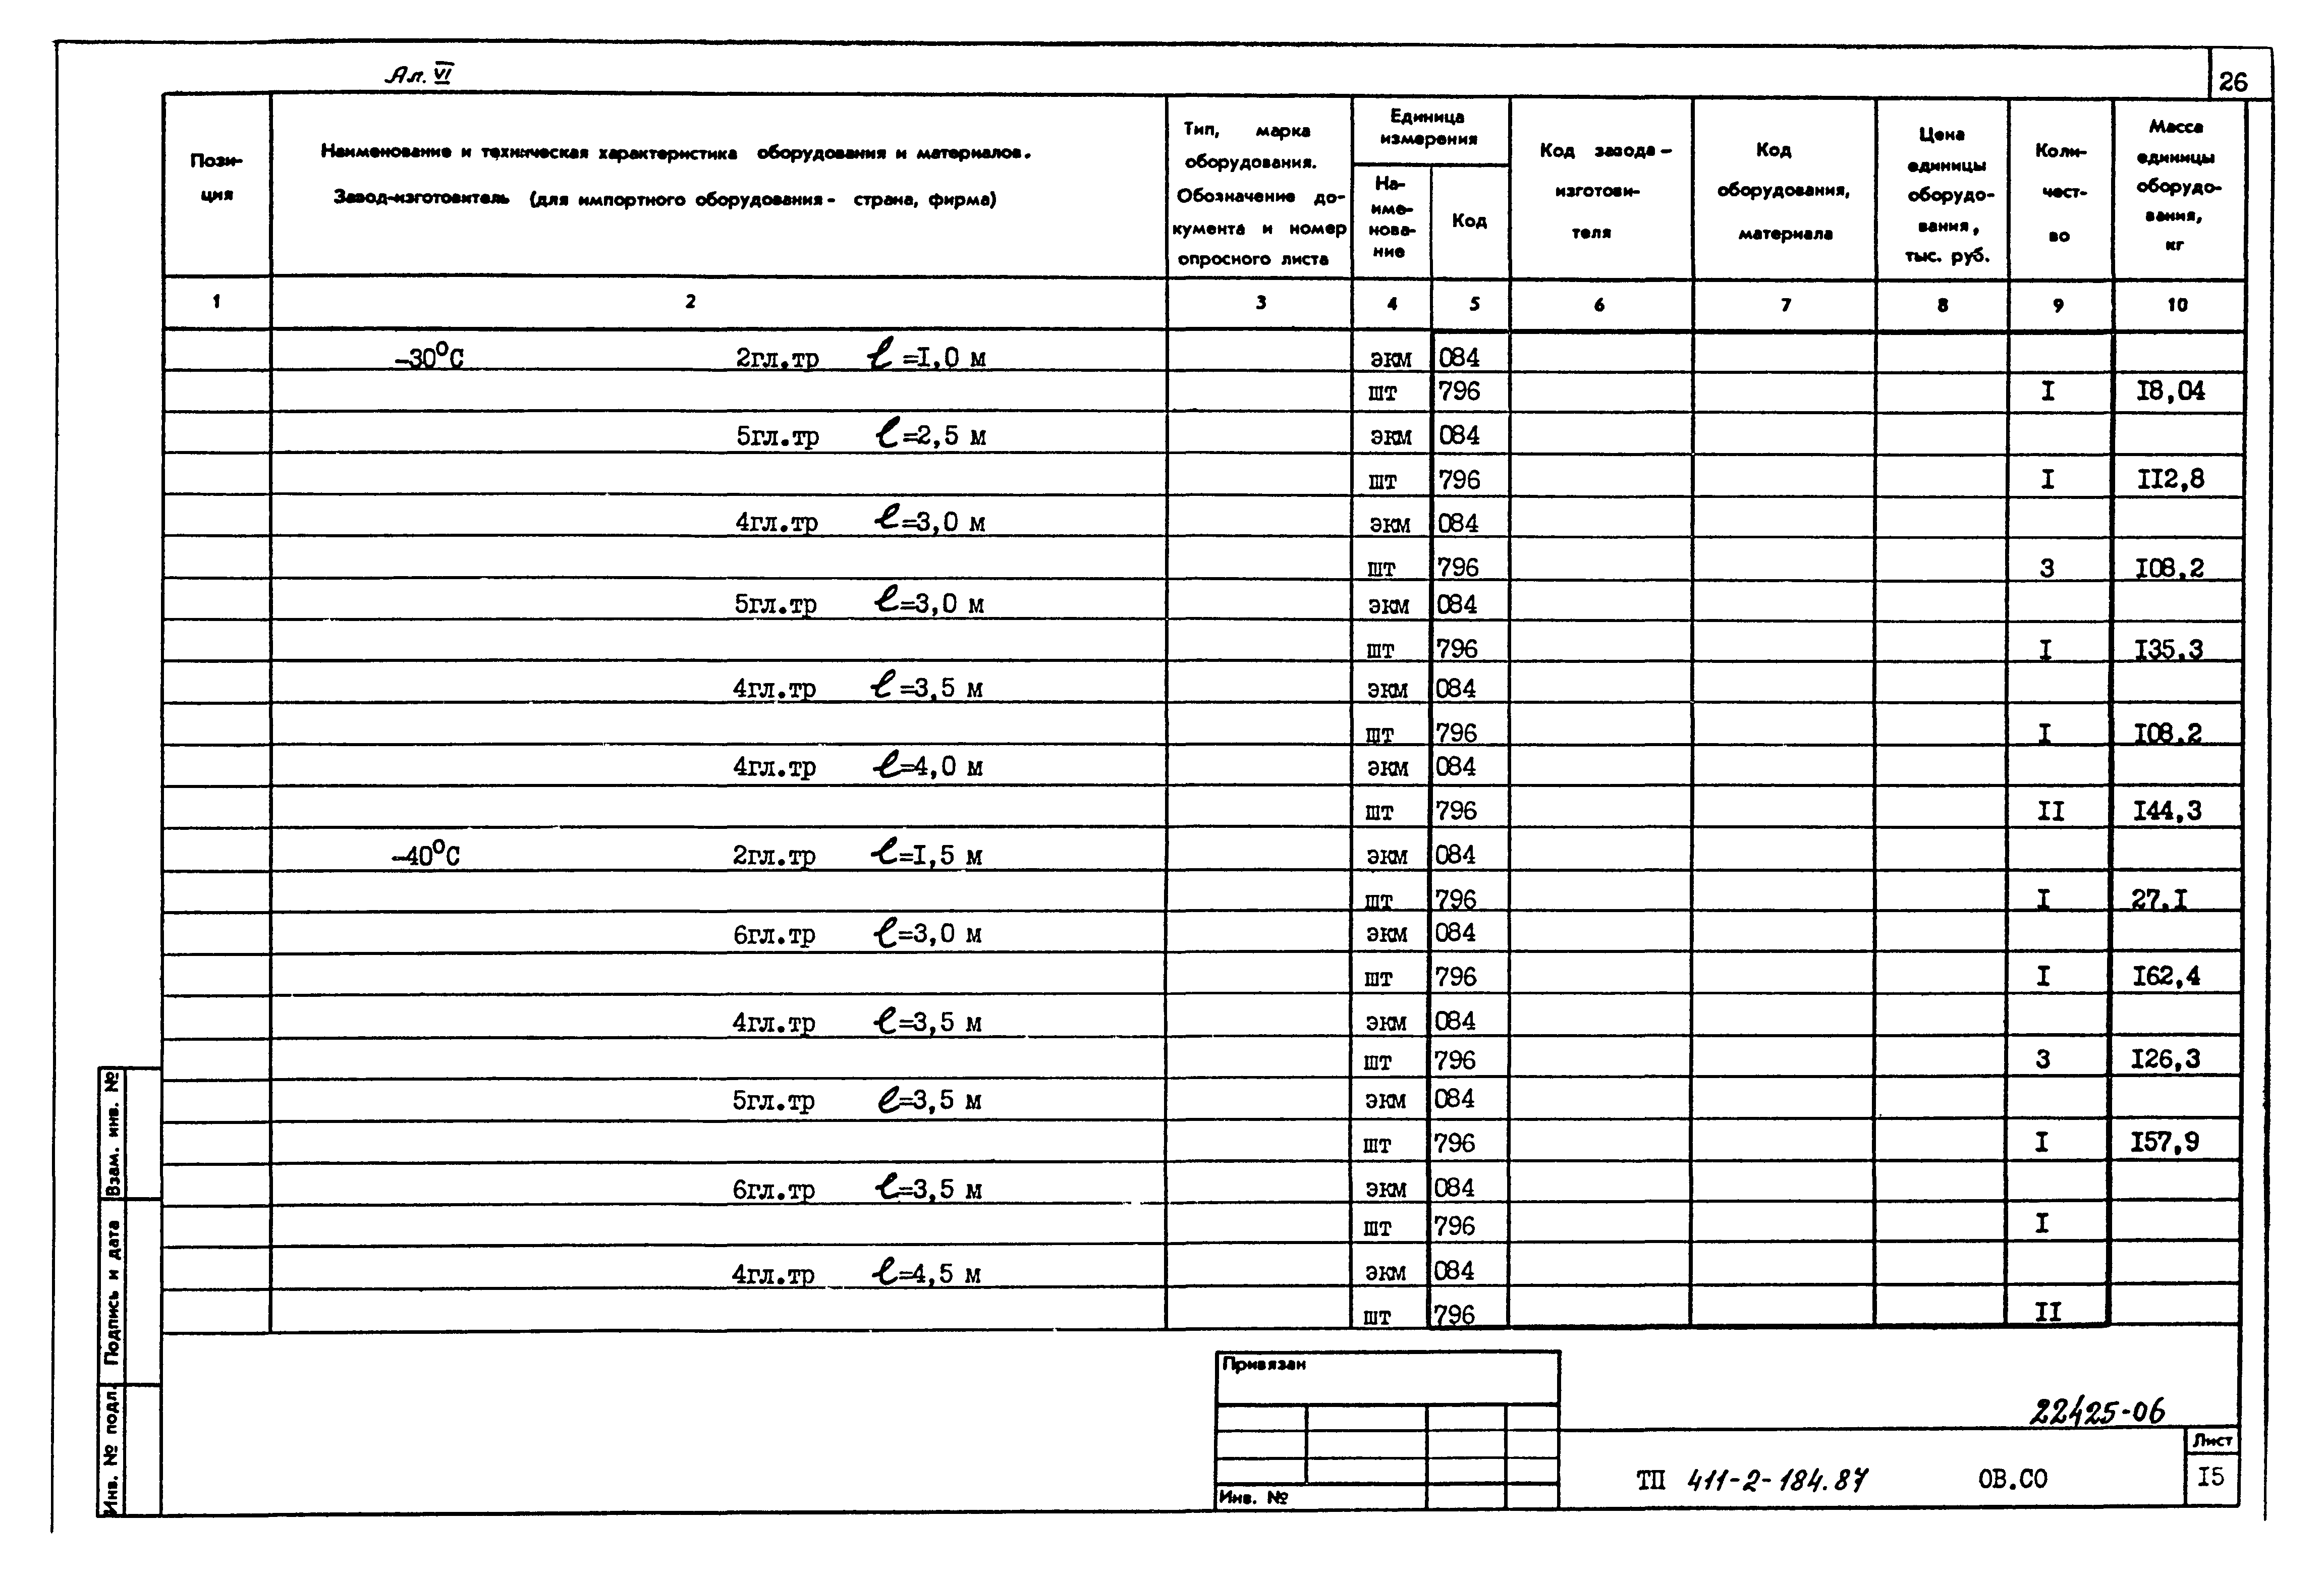 Ал. VI
26
Пози-
ция
Наименование и техническая характеристика оборудования и материалов.
Завод-изготовитель (для импортного оборудования - страна, фирма)
Тип, марка
оборудования.
Обозначение до-
кумента и номер
опросного листа
Единица
измерения
На-
име-
нова-
ние
Код
Код завода-
изготови-
теля
Код
оборудования,
материала
Цена
единицы
оборудо-
вания,
тыс. руб.
Коли-
чест-
во
Масса
единицы
оборудо-
вания,
кг
1 2 3 4 5 6 7 8 9 10
-30°С 2гл.тр ℓ=I,0 м экм 084
шт 796 I I8,04
5гл.тр ℓ=2,5 м экм 084
шт 796 I II2,8
4гл.тр ℓ=3,0 м экм 084
шт 796 3 I08,2
5гл.тр ℓ=3,0 м экм 084
шт 796 I I35,3
4гл.тр ℓ=3,5 м экм 084
шт 796 I I08,2
4гл.тр ℓ=4,0 м экм 084
шт 796 II I44,3
-40°С 2гл.тр ℓ=I,5 м экм 084
шт 796 I 27,I
6гл.тр ℓ=3,0 м экм 084
шт 796 I I62,4
4гл.тр ℓ=3,5 м экм 084
шт 796 3 I26,3
5гл.тр ℓ=3,5 м экм 084
шт 796 I I57,9
6гл.тр ℓ=3,5 м экм 084
шт 796 I
4гл.тр ℓ=4,5 м экм 084
шт 796 II
Взам. инв. №
Подпись и дата
Инв. № подл.
Привязан
Инв. №
22425-06
ТП 411-2-184.87 ОВ.СО
Лист
I5